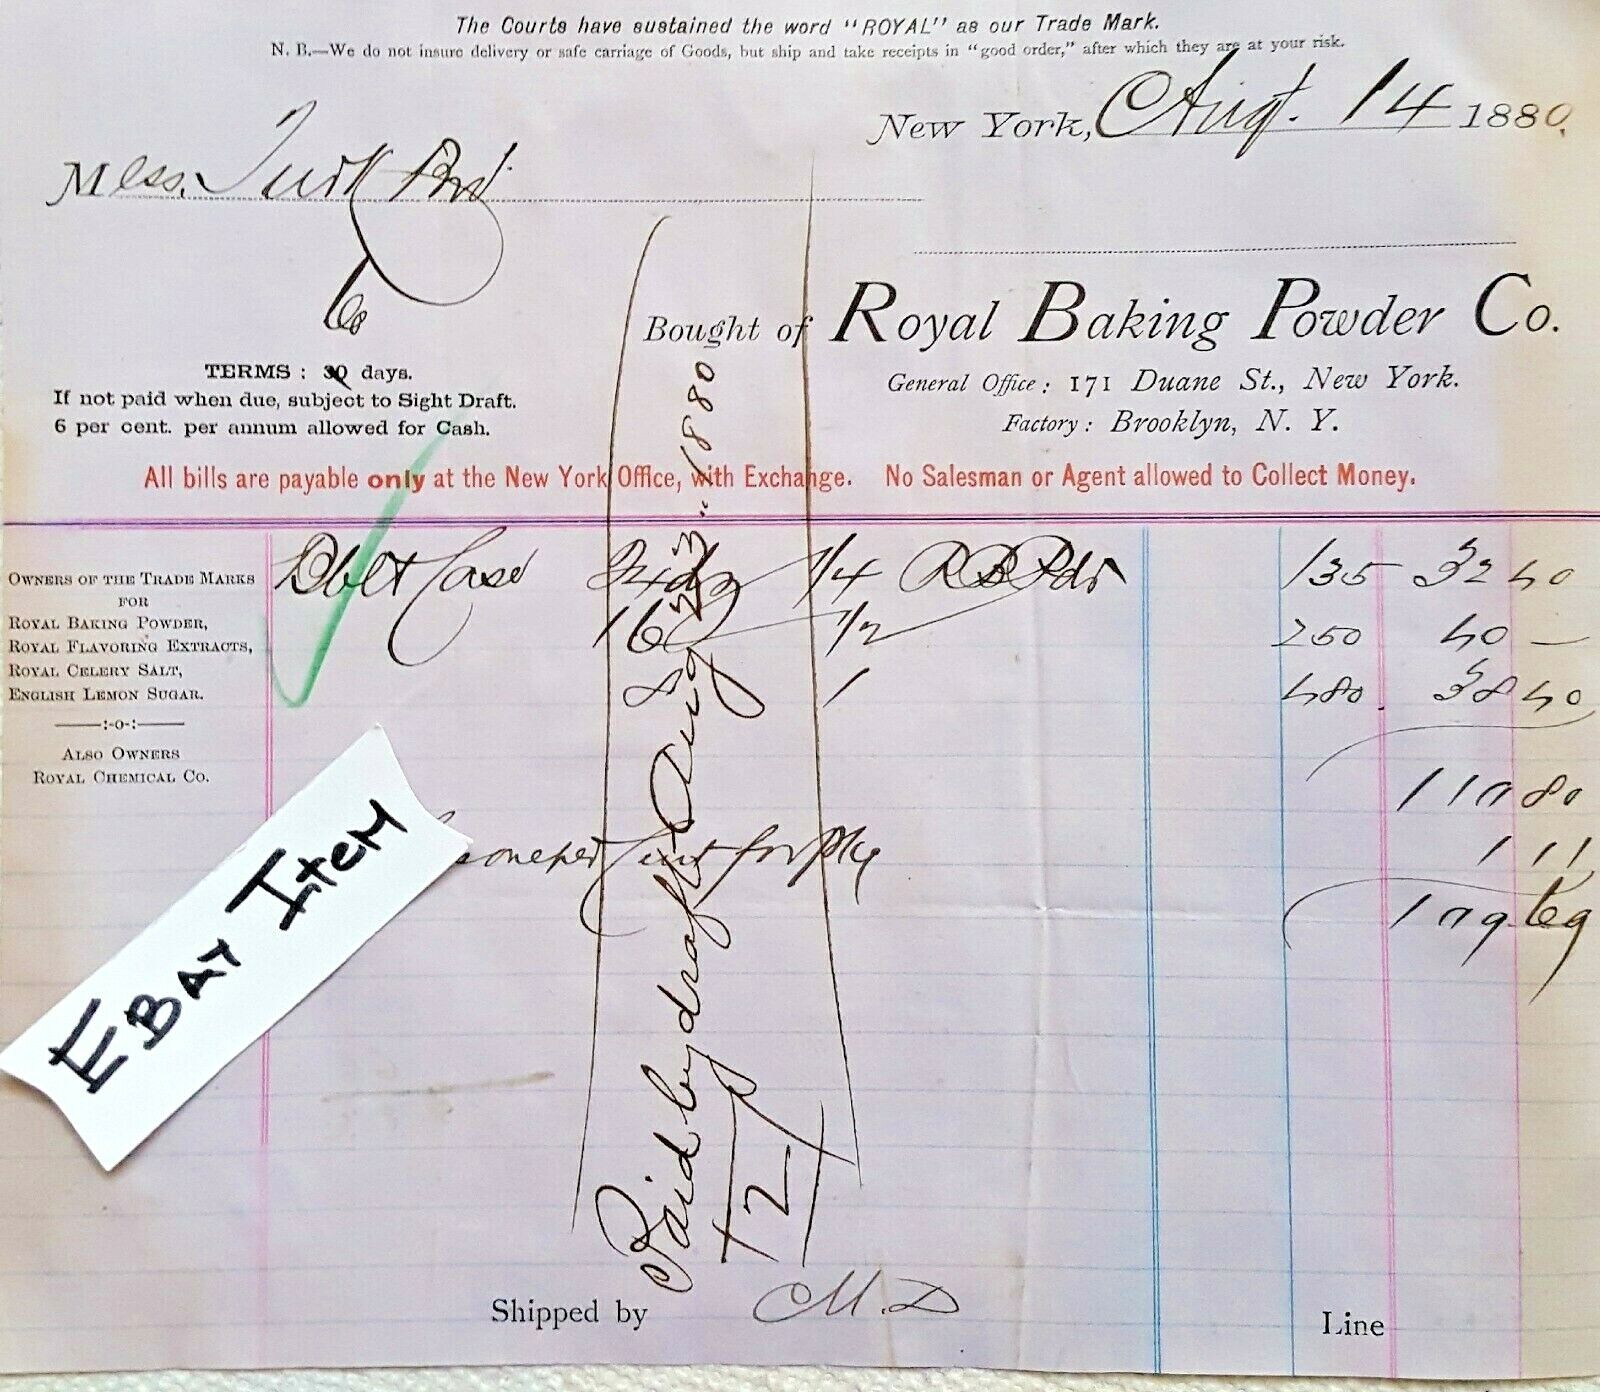 The Courts have sustained the word "ROYAL" as our Trade Mark.
N. B.—We do not insure delivery or safe carriage of Goods, but ship and take receipts in "good order," after which they are at your risk.
New York, Augt. 14 1880.
Mess.
Co
Bought of Royal Baking Powder Co.
TERMS: 30 days.
If not paid when due, subject to Sight Draft.
6 per cent. per annum allowed for Cash.
General Office: 171 Duane St., New York.
Factory: Brooklyn, N. Y.
All bills are payable only at the New York Office, with Exchange. No Salesman or Agent allowed to Collect Money.
OWNERS OF THE TRADE MARKS
FOR
ROYAL BAKING POWDER,
ROYAL FLAVORING EXTRACTS,
ROYAL CELERY SALT,
ENGLISH LEMON SUGAR.
—:-o-:—
ALSO OWNERS
ROYAL CHEMICAL CO.
Case 24 dz 1/4 135 32 40
16 1/2 250 40 —
8 1 480 38 40
110 80
one per Cent for
1 11
109 69
Paid by draft Aug 23.. 1880
EBAY ITEM
Shipped by M.D Line